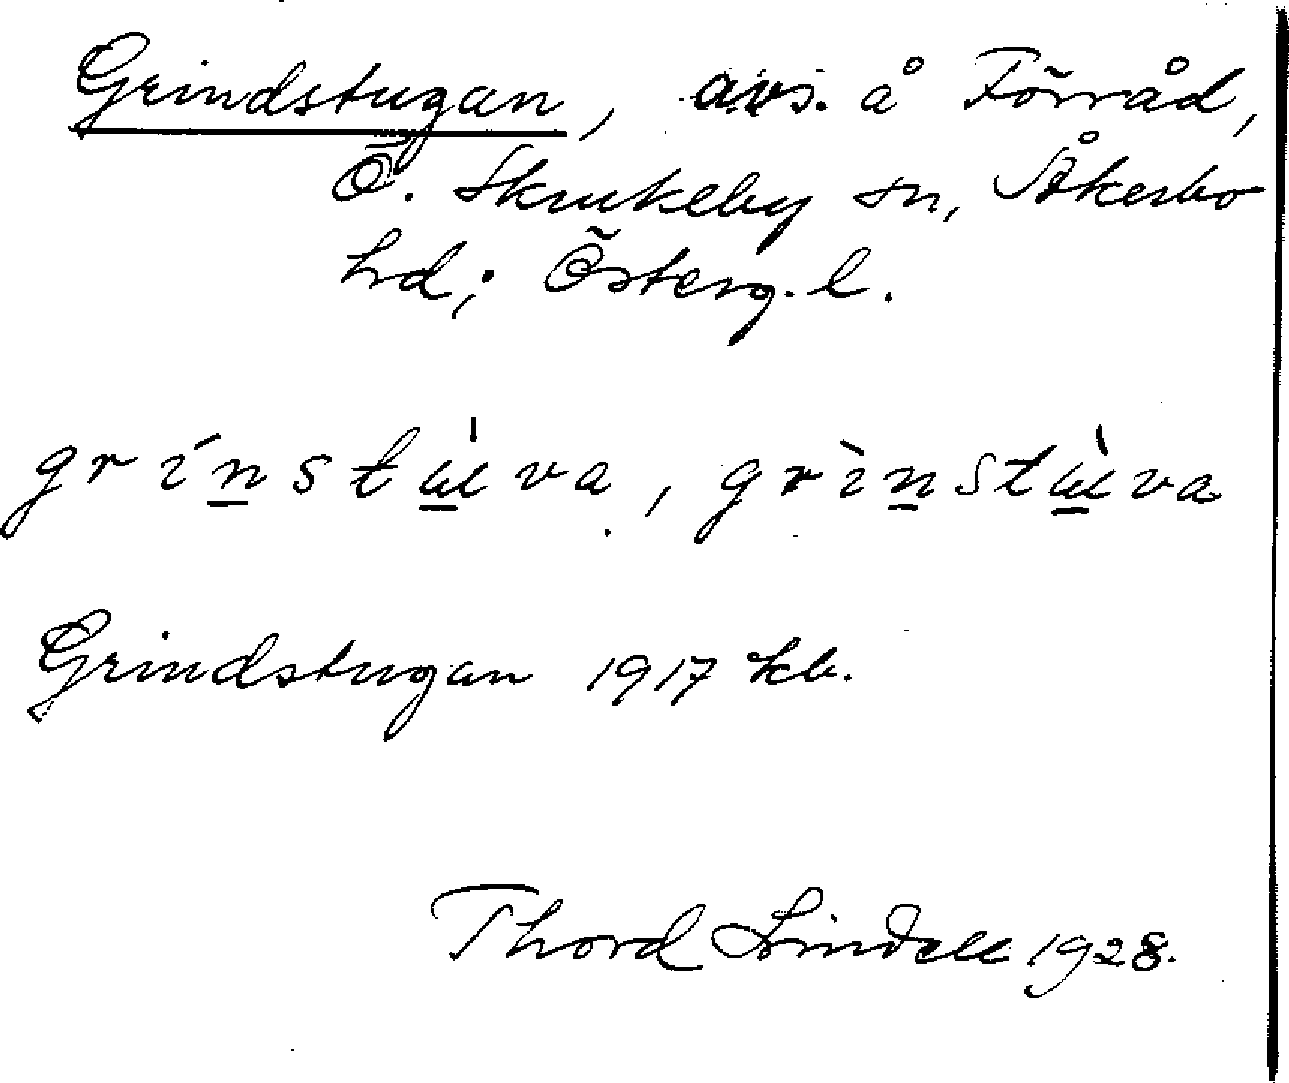 Grindstugan, avs. å Förråd,
Ö. Skrukeby sn, Åkerbo
hd; Österg. l.
grı́n̲stu̲̍va, grı̀n̲stù̲va
Grindstugan 1917 kb.
Thord Lindell 1928.